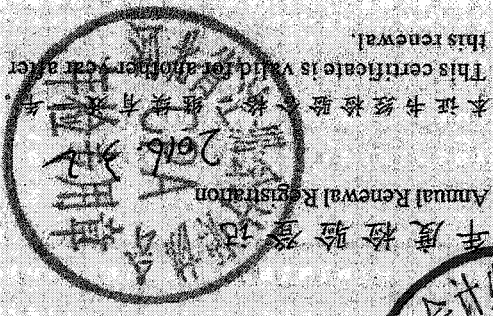 年度检验登记
Annual Renewal Registration
本证书经检验合格，继续有效一年。
This certificate is valid for another year after
this renewal.
CPA
2016
专用章
会计